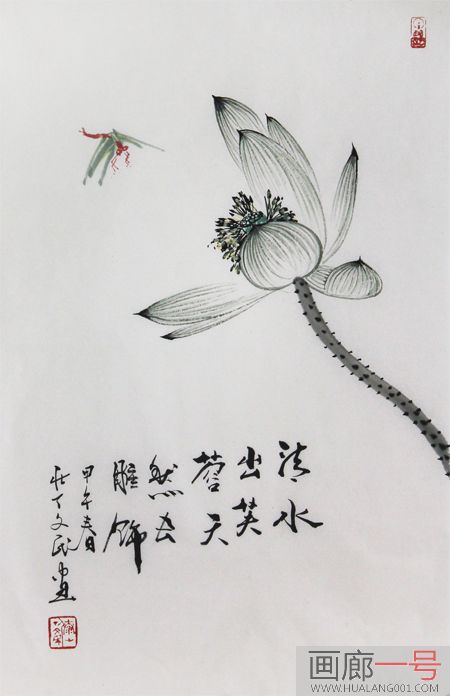 清水
出芙
蓉天
然去
雕饰
甲午春日
文民画
画廊一号
WWW.HUALANG001.COM